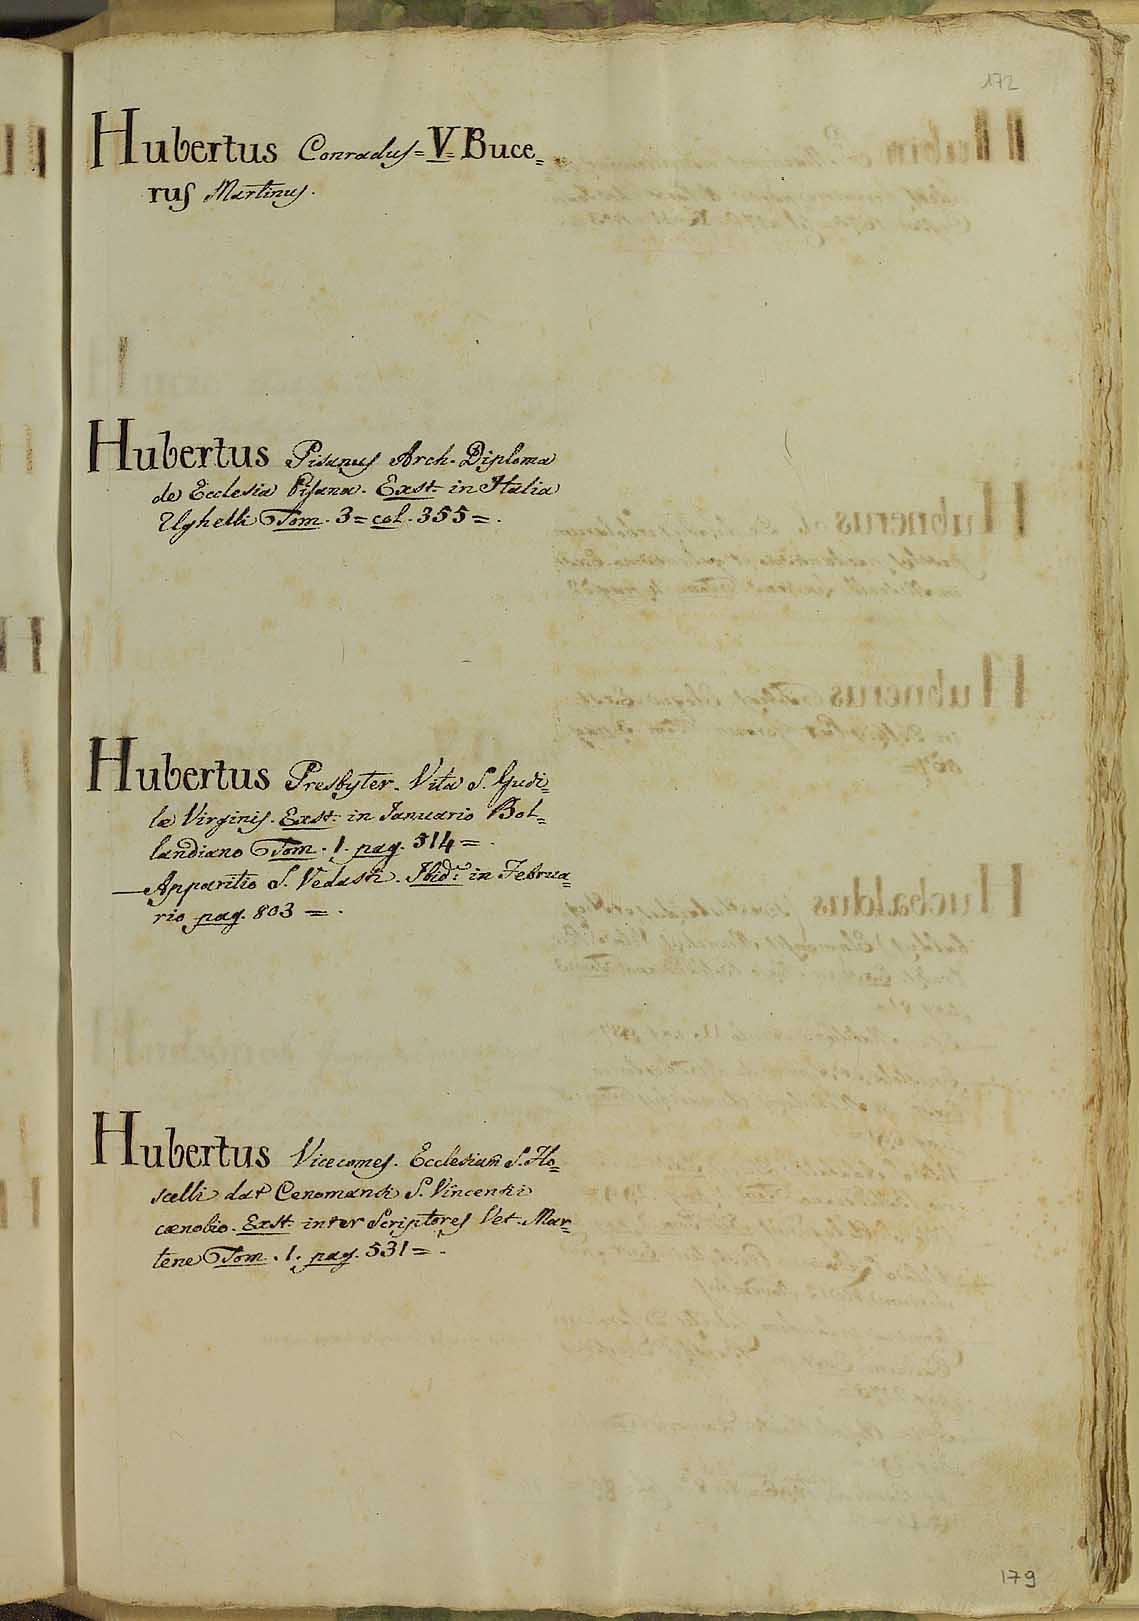 172
Hubertus Conradus = V. Buce=
rus Martinus.
Hubertus Pisanus Arch. Diploma
de Ecclesia Pisana. Exst. in Italia
Ughelli Tom. 3 = col. 355 = .
Hubertus Presbyter. Vita S. Gudi=
læ Virginis. Exst. in Januario Bol=
landiano Tom. 1. pag. 514 = .
— Apparitio S. Vedasti. Ibid. in Februa=
rio pag. 803 = .
Hubertus Vicecomes. Ecclesiam S. Ho=
scelli dat Cenomansi S. Vincentii
cænobio. Exst. inter Scriptores Vet. Mar=
tene Tom. 1. pag. 531 = .
179